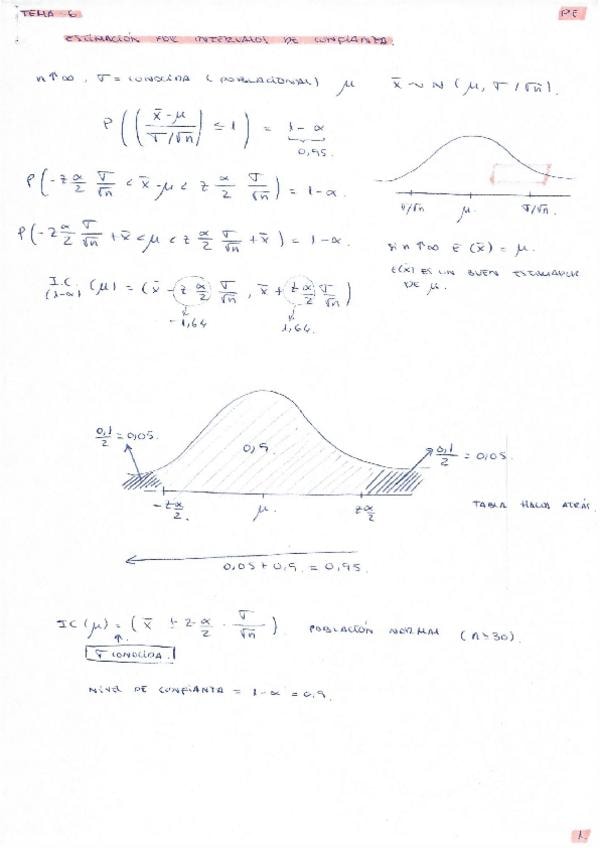 TEMA - 6 PE
ESTIMACIÓN POR INTERVALOS DE CONFIANZA.
n↑∞, σ = CONOCIDA (POBLACIONAL) μ x̄ ~ N (μ, σ/√n).
P((|x̄-μ / σ/√n| ≤ 1) = 1-α
0,95.
P(-z α/2 σ/√n < x̄-μ < z α/2 σ/√n) = 1-α.
σ/√n μ. σ/√n.
P(-z α/2 σ/√n + x̄ < μ < z α/2 σ/√n + x̄) = 1-α.
si n↑∞ E(x̄) = μ.
E(x̄) ES UN BUEN ESTIMADOR
DE μ.
I.C. (1-α) (μ) = (x̄ - z α/2 σ/√n, x̄ + z α/2 σ/√n)
-1,64 1,64.
0,1/2 = 0,05.
0,9.
0,1/2 = 0,05.
-z α/2. μ. z α/2
TABLA HACIA ATRÁS.
0,05 + 0,9. = 0,95.
IC (μ) = (x̄ ± z α/2 · σ/√n). POBLACIÓN NORMAL (n>30).
σ CONOCIDA.
NIVEL DE CONFIANZA = 1-α = 0,9.
1.